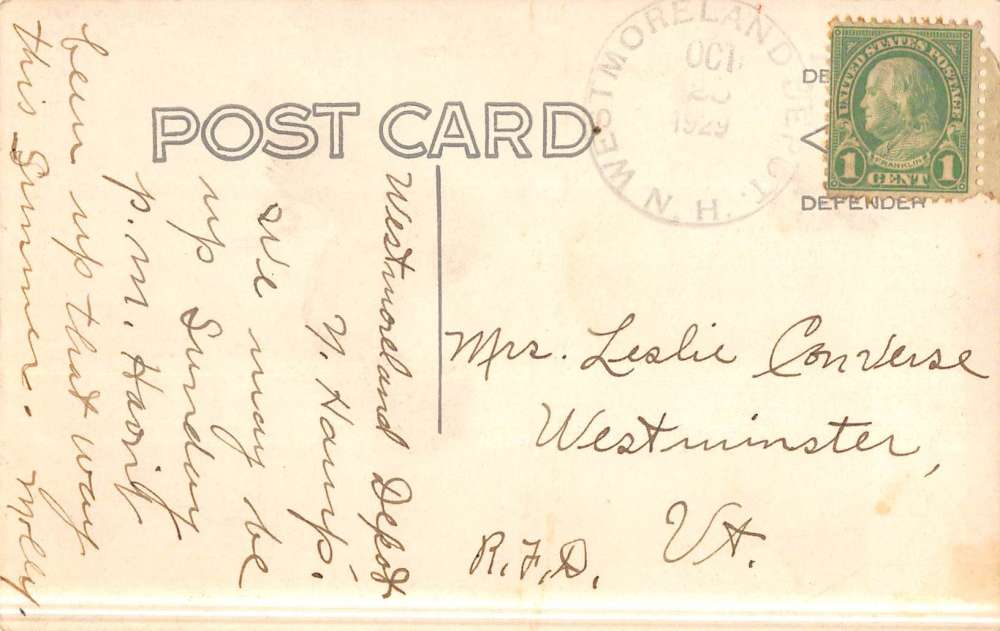 POST CARD
WESTMORELAND DEPOT.
N.H.
OCT
1929
DEFENDER
UNITED STATES POSTAGE
FRANKLIN
1 CENT 1
Westmoreland Depot
N. Hamp.
We may be
up Sunday
p.m. Havn't
been up that way
this Summer. Molly.
Mrs. Leslie Converse
Westminster,
Vt.
R.F.D.